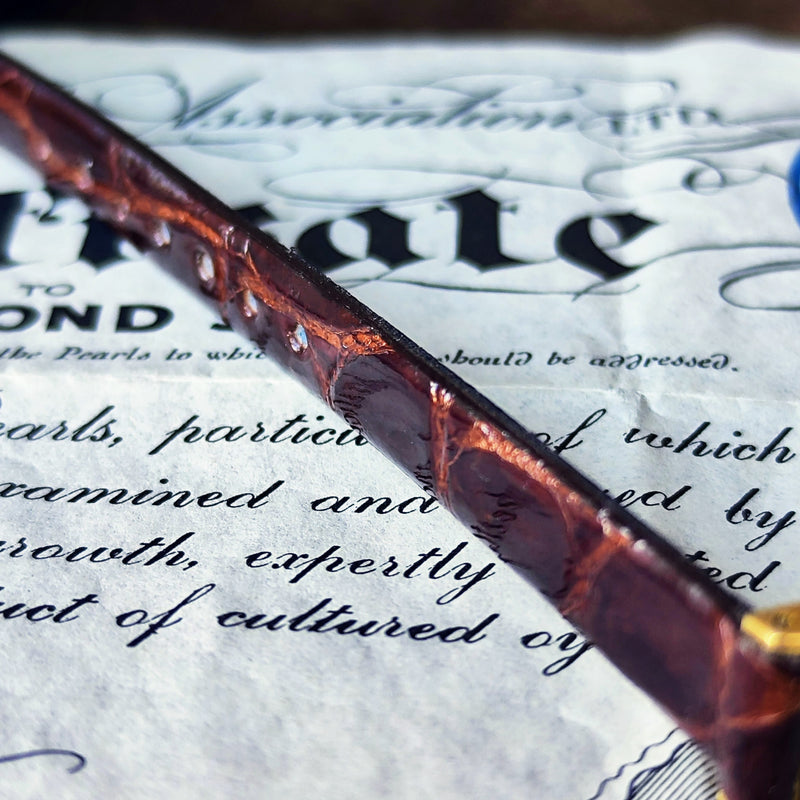 Association LTD.
TO
OND
the Pearls to which should be addressed.
earls, particu of which
xamined and ed by
rowth, expertly ted
uct of cultured oy